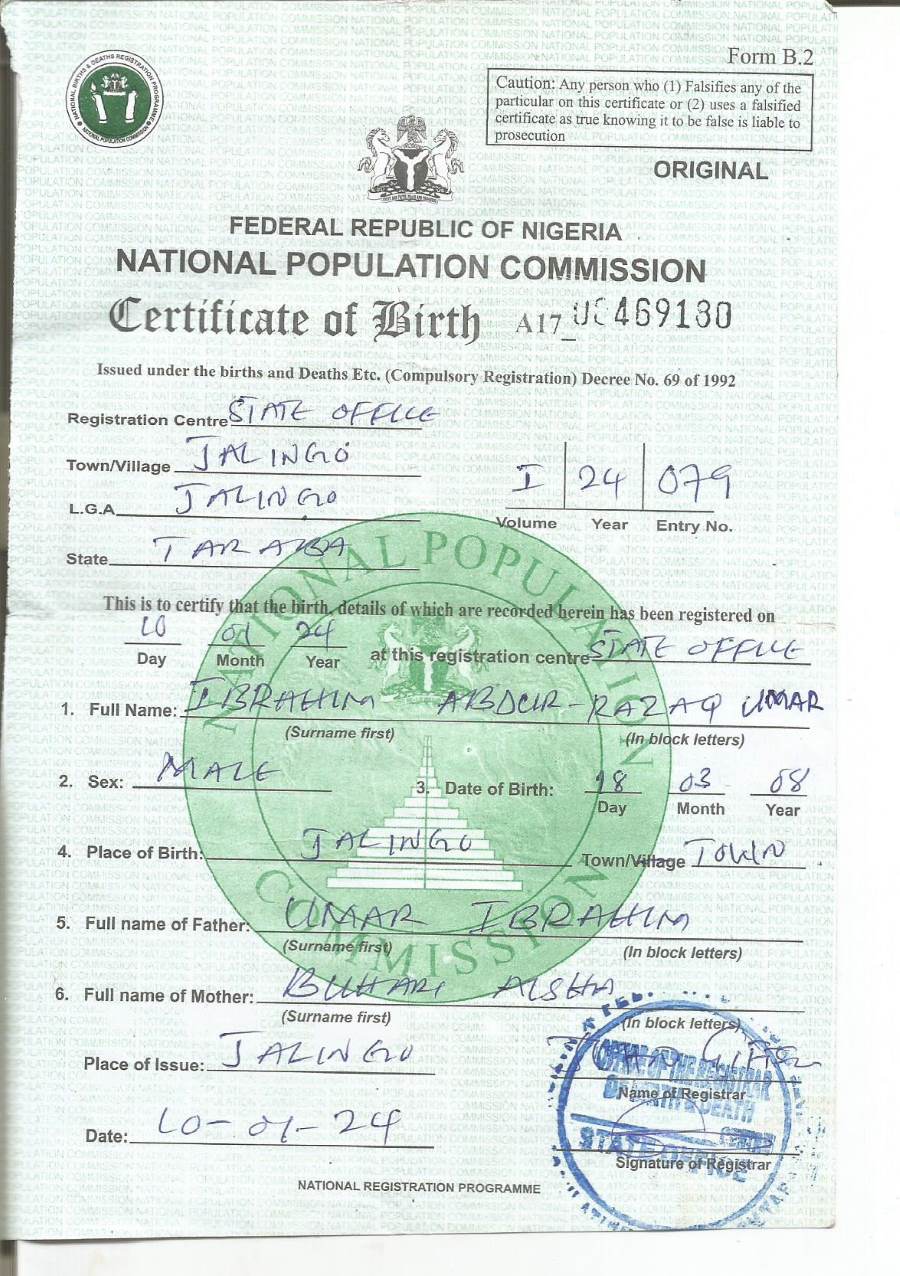 Form B.2
NATIONAL BIRTHS & DEATHS REGISTRATION PROGRAMME
NATIONAL POPULATION COMMISSION
Caution: Any person who (1) Falsifies any of the
particular on this certificate or (2) uses a falsified
certificate as true knowing it to be false is liable to
prosecution
ORIGINAL
FEDERAL REPUBLIC OF NIGERIA
NATIONAL POPULATION COMMISSION
Certificate of Birth A17
Issued under the births and Deaths Etc. (Compulsory Registration) Decree No. 69 of 1992
Registration Centre STATE OFFICE
Town/Village JALINGO
L.G.A JALINGO
I 24 079
Volume Year Entry No.
State TARABA
NATIONAL POPULATION COMMISSION
This is to certify that the birth, details of which are recorded herein has been registered on
10 01 24 at this registration centre STATE OFFICE
Day Month Year
1. Full Name: IBRAHIM ABDUR-RAZAQ UMAR
(Surname first) (In block letters)
2. Sex: MALE 3. Date of Birth: 18 03 08
Day Month Year
4. Place of Birth: JALINGO Town/Village TOWN
5. Full name of Father: UMAR IBRAHIM
(Surname first) (In block letters)
6. Full name of Mother: BUHARI AISHA
(Surname first) (In block letters)
Place of Issue: JALINGO
OFFICE OF THE REGISTRAR
Name of Registrar
Date: 10-01-24
STATE OFFICE
Signature of Registrar
NATIONAL REGISTRATION PROGRAMME